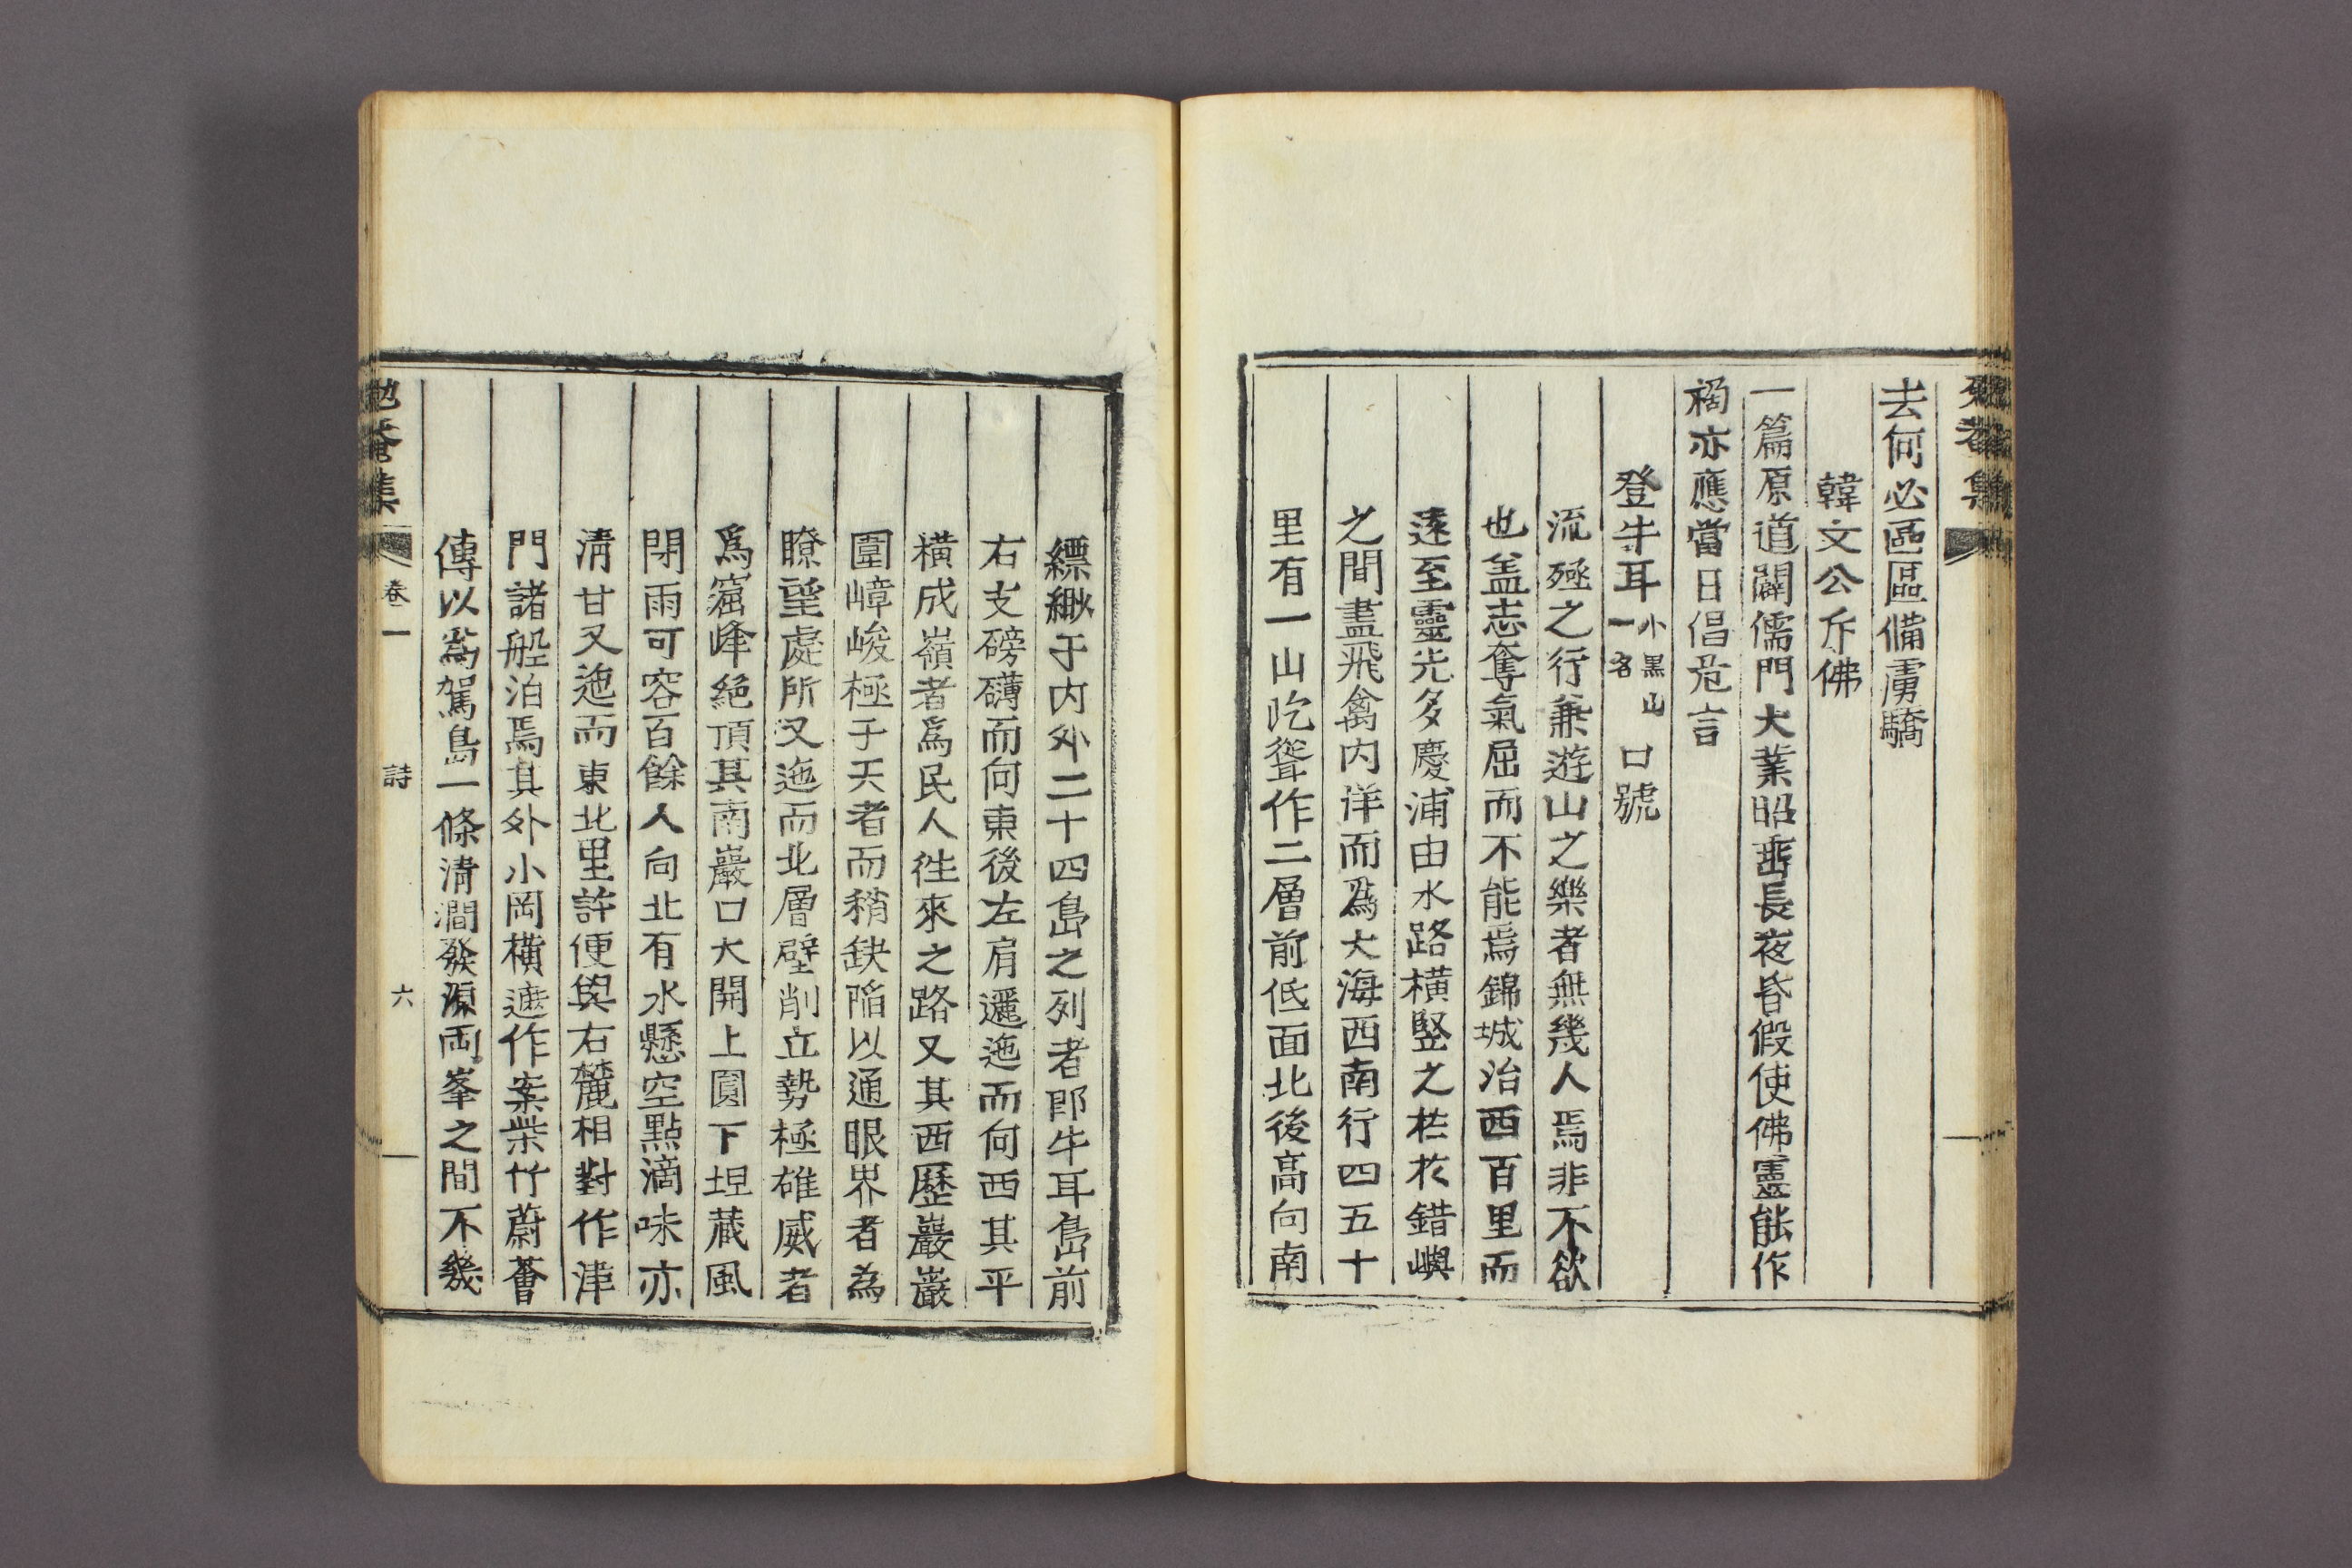 勉菴集
去何必區區備虜驕
韓文公斥佛
一篇原道闢儒門大業昭垂長夜昏假使佛靈能作
禍亦應當日倡危言
登牛耳小黑山一名口號
流殛之行兼遊山之樂者無幾人焉非不欲
也盖志奪氣屈而不能焉錦城治西百里而
遠至靈光多慶浦由水路橫竪之於錯嶼
之間盡飛禽內洋而爲大海西南行四五十
里有一山屹聳作二層前低面北後高向南
縹緲于內外二十四島之列者卽牛耳島前
右支磅礴而向東後左肩邐迤而向西其平
橫成嶺者爲民人往來之路又其西歷巖巖
圍嶂峻極于天者而稍缺陷以通眼界者為
瞭望處所又迤而北層壁削立勢極雄威者
爲窟峰絕頂其南巖口大開上圓下坦藏風
閉雨可容百餘人向北有水懸空點滴味亦
淸甘又迤而東北里許便與右麓相對作津
門諸船泊焉其外小岡橫遮作案柴竹蔚薈
傳以爲駕島一條淸澗發源兩峯之間不幾
勉菴集 卷一 詩 六